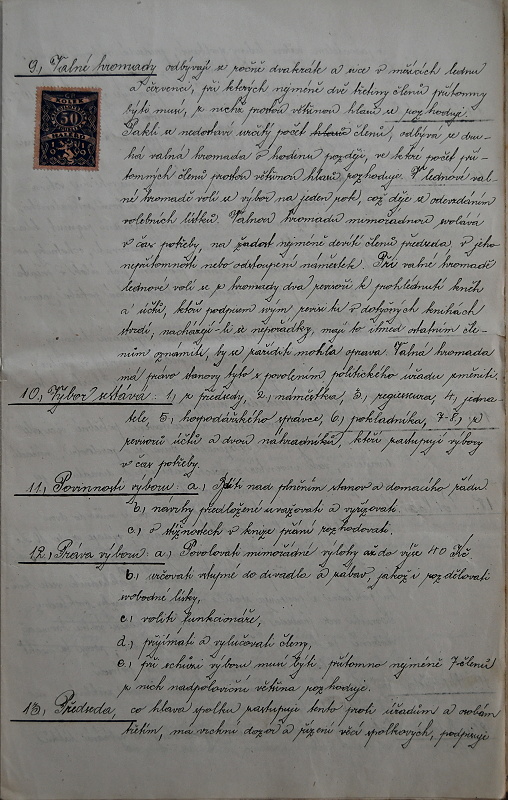 9., Valné hromady odbývají se ročně dvakráte a sice v měsících lednu
a červenci, při kterých nejméně dvě třetiny členů přítomny
býti musí, z nichž prostou většinou hlasů se rozhoduje.
Pakli se nedostaví určitý počet hlasů členů, odbývá se dru-
há valná hromada o hodinu později, ve které počet pří-
tomných členů prostou většinou hlasů rozhoduje. V lednové val-
né hromadě volí se výbor na jeden rok, což děje se odevzdáním
volebních lístků. Valnou hromadu mimořádnou svolává
v čas potřeby, na žádost nejméně devíti členů předseda, v jeho
nepřítomnosti nebo odstoupení náměstek. Při valné hromadě
lednové volí se z hromady dva revisoři k prohlédnutí kněh
a účtů, kteří podpisem svým revisi tu v dotyčných knihách
stvrdí, nacházejí-li se nepořádky, mají to ihned ostatním čle-
nům oznámiti, by se zaříditi mohla oprava. Valná hromada
má právo stanovy tyto s povolením politického úřadu změniti.
10., Výbor sestává: 1., z předsedy, 2., náměstka, 3., regisseura, 4., jedna-
tele, 5., hospodářského správce, 6., pokladníka, 7-8., z
revisorů účtů a dvou náhradníků, kteří zastupují výbory
v čas potřeby.
11., Povinnosti výboru: a., Bdíti nad plněním stanov a domacího řádu
b., návrhy předložené uvazovati a vyřizovati.
c., o stížnostech v knize přání rozhodovati.
12., Práva výboru: a., Povolovati mimořádné výlohy až do výše 40 Kč
b., určovati vstupné do divadla a zábav, jakož i rozdělovati
svobodné lístky,
c., voliti funkcionáře,
d., přijímati a vylučovati členy,
e., při schůzi výboru musí býti přítomno nejméně 7 členů
z nich nadpoloviční většina rozhoduje.
13., Předseda, co hlava spolku, zastupuje tento proti úřadům a osobám
třetím, má vrchní dozor a řízení věcí spolkových, podpisuje
KOLEK
50
HALÉŘŮ
1919